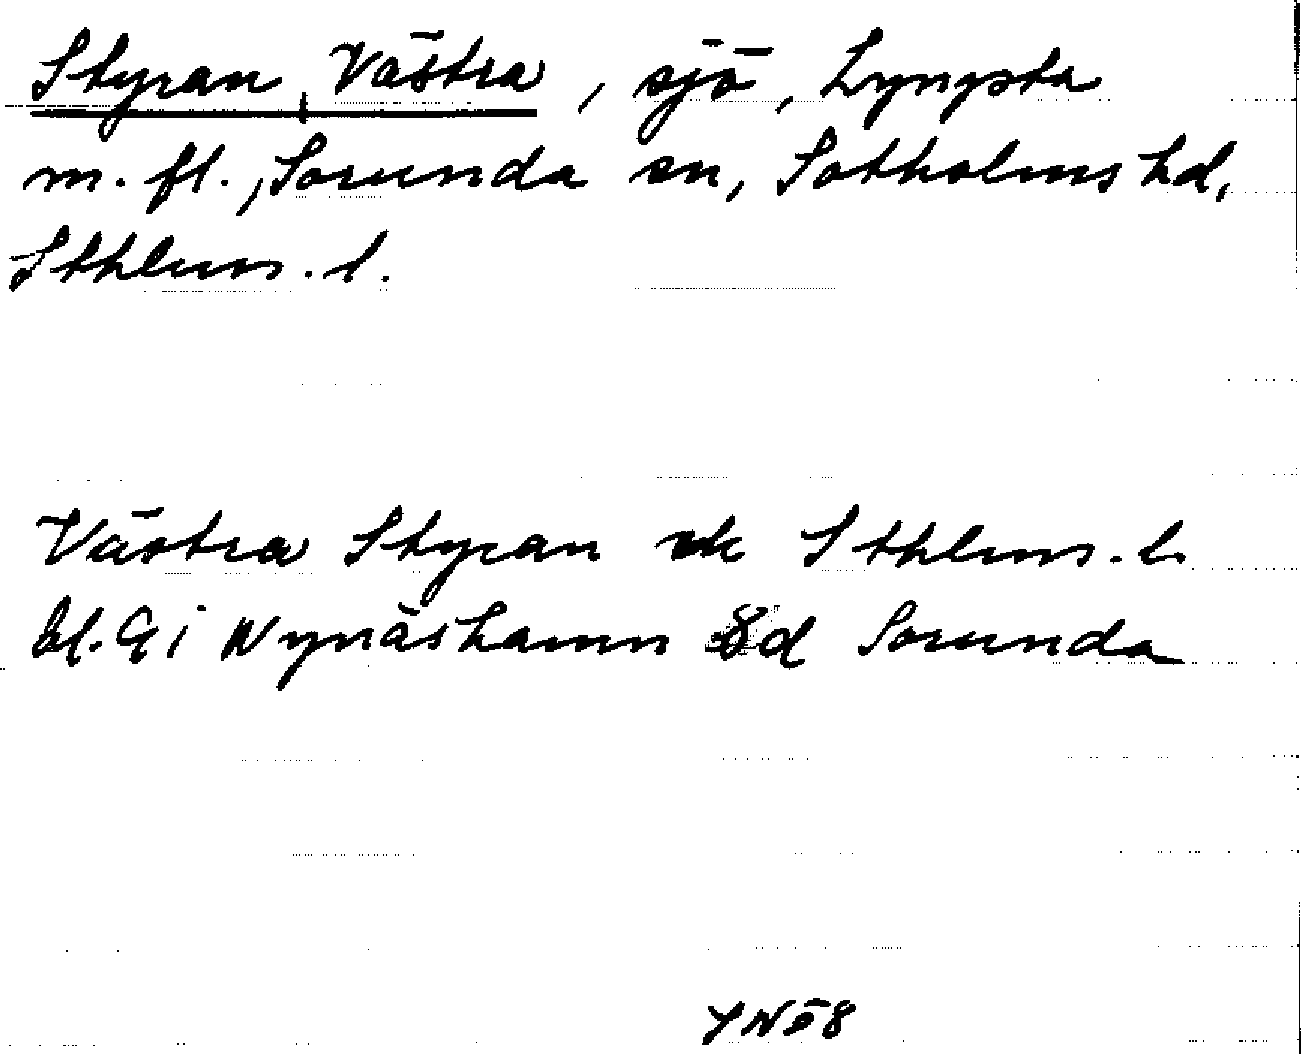 Styran, Västra, sjö, Lyngsta
m. fl., Sorunda sn, Sotholms hd,
Sthlms. l.
Västra Styran vk Sthlms. l.
bl. 9 i Nynäshamn 8d Sorunda
YNÖ8